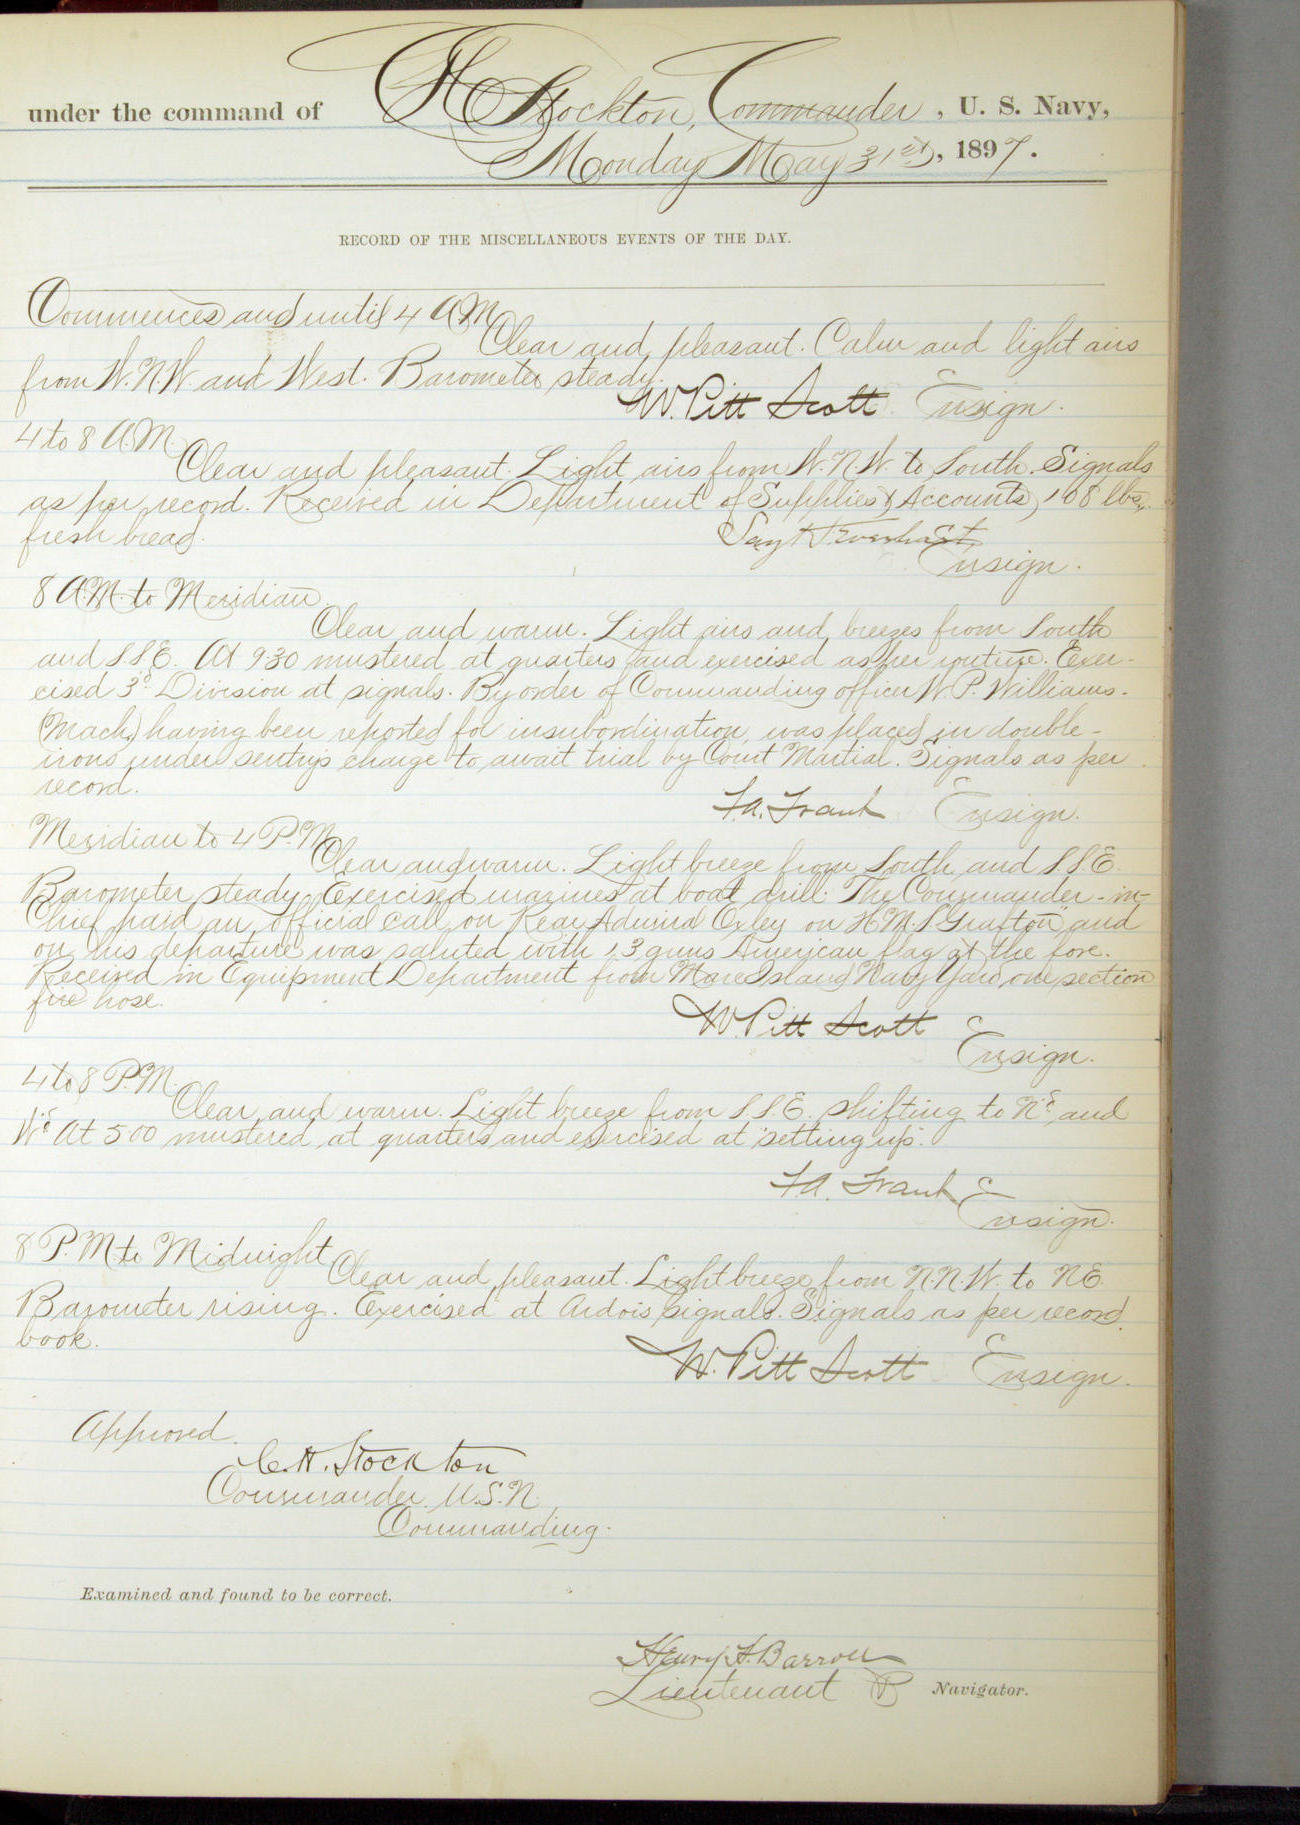 under the command of C H Stockton, Commander, U. S. Navy,
Monday May 31st, 1897.
RECORD OF THE MISCELLANEOUS EVENTS OF THE DAY.
Commences and until 4 A.M.
Clear and pleasant. Calm and light airs
from W.N.W. and West. Barometer steady.
W. Pitt Scott Ensign.
4 to 8 A.M.
Clear and pleasant. Light airs from W.N.W. to South. Signals
as per record. Received in Department of Supplies & Accounts, 108 lbs.
fresh bread.
Lay H. Everhart,
Ensign.
8 A.M. to Meridian
Clear and warm. Light airs and breezes from South
and S.S.E. At 9 30 mustered at quarters and exercised as per routine. Exer-
cised 3d Division at signals. By order of Commanding officer W. P. Williams.
(Mach.) having been reported for insubordination, was placed in double-
irons under sentry's charge to await trial by Court Martial. Signals as per
record.
F.A. Traut Ensign.
Meridian to 4 P.M.
Clear and warm. Light breeze from South and S.S.E.
Barometer steady. Exercised marines at boat drill. The Commander-in-
Chief paid an official call on Rear Admiral Oxley on H.M.S. "Grafton" and
on his departure was saluted with 13 guns American flag at the fore.
Received in Equipment Department from Mare Island Navy Yard, one section
fire hose.
W. Pitt Scott
Ensign.
4 to 8 P.M.
Clear and warm. Light breeze from S.S.E. shifting to Nd and
Wd. At 5 00 mustered at quarters and exercised at "setting up".
F.A. Traut
Ensign.
8 P.M. to Midnight
Clear and pleasant. Light breeze from N.N.W. to NE.
Barometer rising. Exercised at Ardois signals. Signals as per record
book.
W. Pitt Scott Ensign.
Approved.
C. H. Stockton
Commander U.S.N.
Commanding.
Examined and found to be correct.
Henry H. Barroll
Lieutenant Navigator.